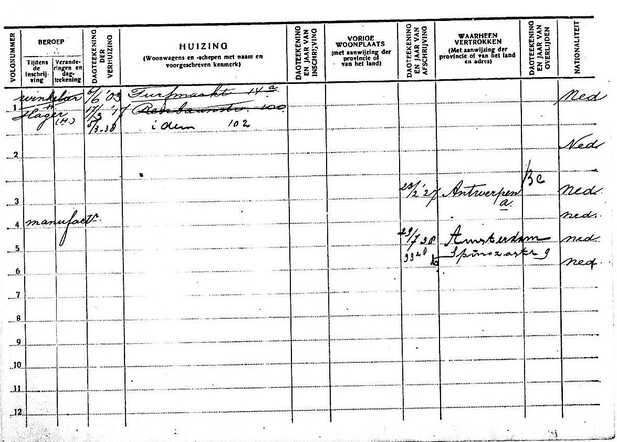 VOLGNUMMER
BEROEP
Tijdens de inschrijving
Veranderingen en dagteekening
DAGTEEKENING DER VERHUIZING
HUIZING
(Woonwagens en -schepen met naam en voorgeschreven kenmerk)
DAGTEEKENING EN JAAR VAN INSCHRIJVING
VORIGE WOONPLAATS
(met aanwijzing der provincie of van het land)
DAGTEEKENING EN JAAR VAN AFSCHRIJVING
WAARHEEN VERTROKKEN
(Met aanwijzing der provincie of van het land en adres)
DAGTEEKENING EN JAAR VAN OVERLIJDEN
NATIONALITEIT
1 Turfmarkt 14a Ned
Slager
idem 102
2 Ned
3 Antwerpen Ned
4 manufact ned.
5 Amsterdam ned
6 ned
7
8
9
10
11
12